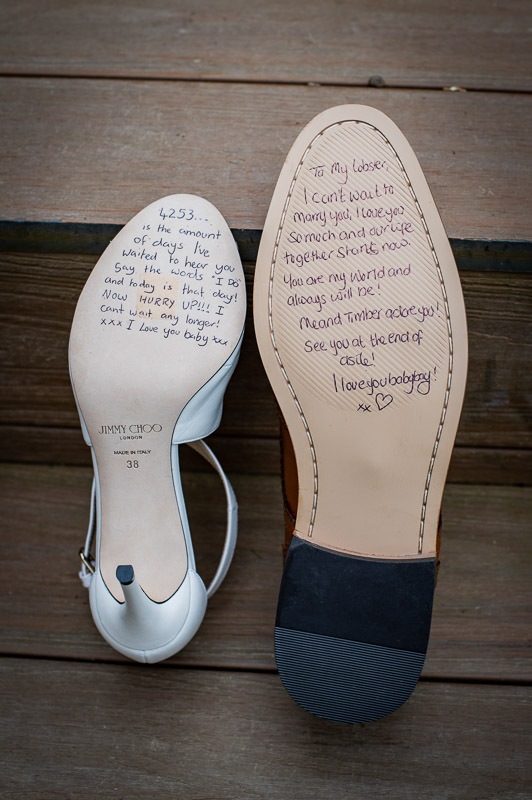 4253...
is the amount
of days I've
waited to hear you
Say the words "I DO"
and today is that day!
Now HURRY UP!!! I
cant wait any longer!
xxx I Love you baby xxx
JIMMY CHOO
LONDON
MADE IN ITALY
38
To My lobster,
I can't wait to
marry you, I love you
so much and our life
together starts now.
You are my world and
always will be!
Me and Timber adore you!
See you at the end of
aisle!
I love you babyboy!
xx ♡